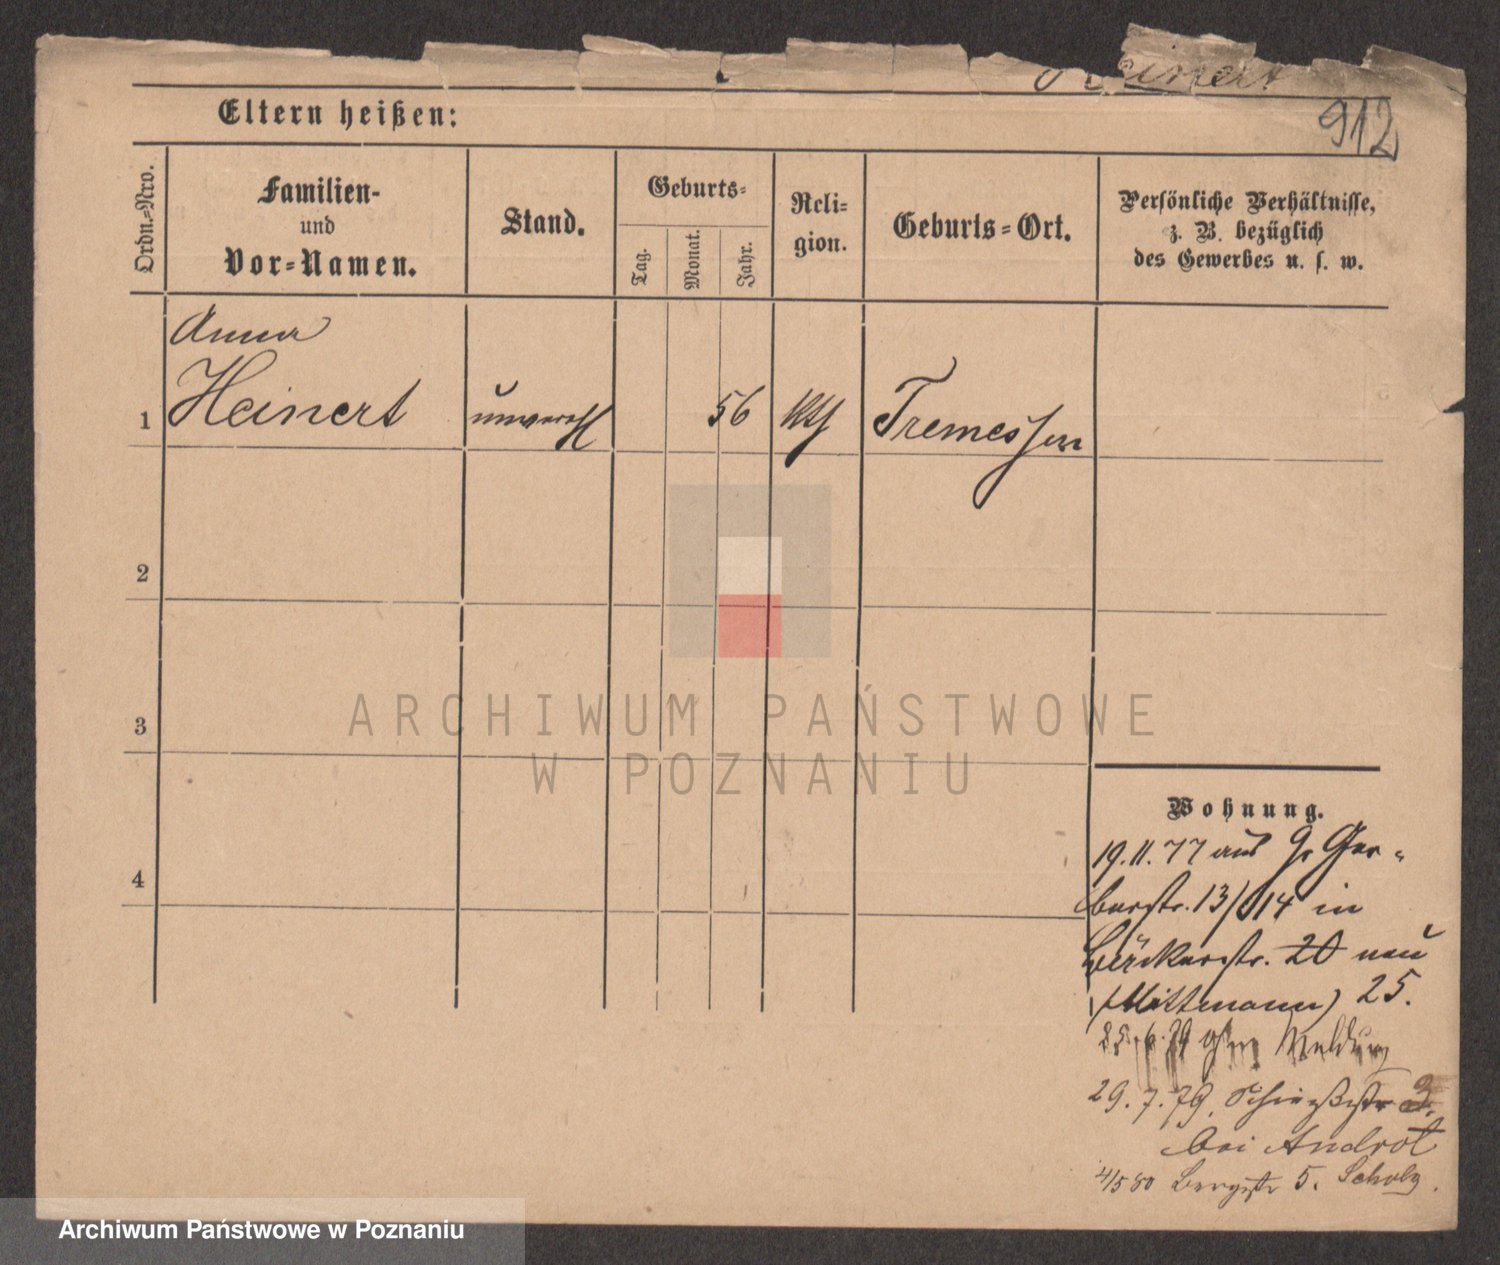 Heinert
912
Eltern heißen:
Ordn.=Nro.
Familien-
und
Vor=Namen.
Stand.
Geburts=
Tag.
Monat.
Jahr.
Reli=
gion.
Geburts=Ort.
Persönliche Verhältnisse,
z. B. bezüglich
des Gewerbes u. s. w.
Anna
1 Heinert unvereh 56 kth Tremessen
2
3
4
Wohnung.
19.11.77 aus Gr Ger-
berstr. 13/14 in
Bäckerstr. 20 neu
(Mittmann) 25.
6.79 Meldung
29.7.79. Schießstr 3.
bei Androt
4/5 80 Bergstr 5. Scholz.
ARCHIWUM PAŃSTWOWE
W POZNANIU
Archiwum Państwowe w Poznaniu